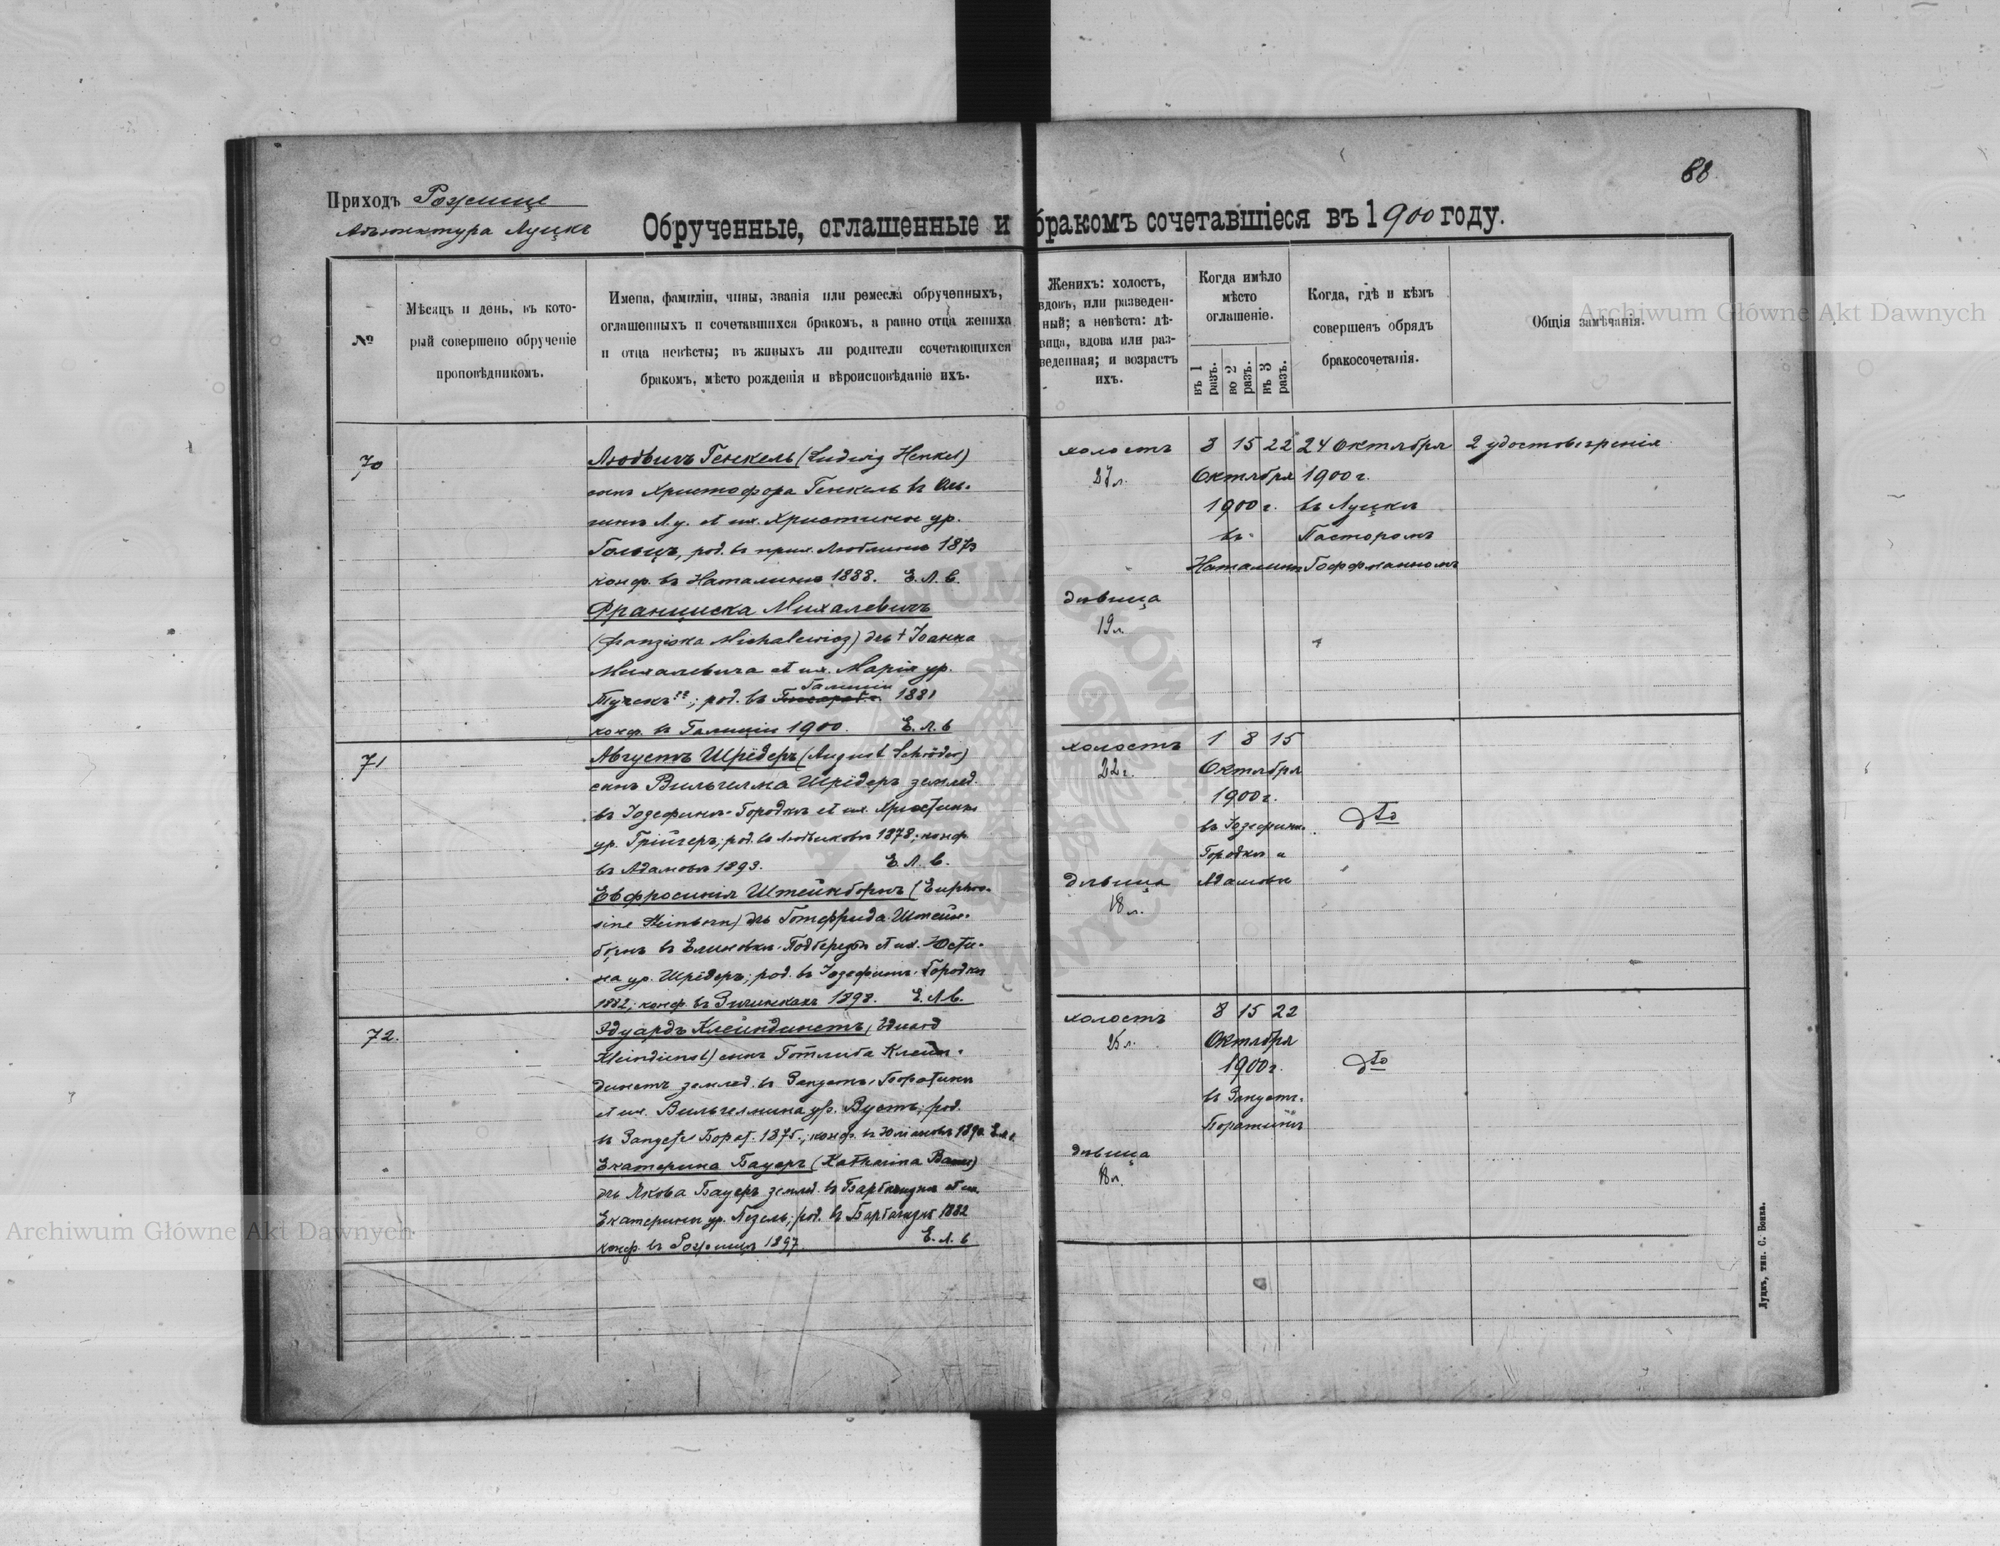 88.
Приходъ Рожище
Адъюнктура Луцкъ
Обрученные, оглашенные и бракомъ сочетавшіеся въ 1900 году.
№
Мѣсяцъ и день, въ кото-
рый совершено обрученіе
проповѣдникомъ.
Имена, фамиліи, чины, званія или ремесла обрученныхъ,
оглашенныхъ и сочетавшихся бракомъ, а равно отца жениха
и отца невѣсты; въ живыхъ ли родители сочетающихся
бракомъ, мѣсто рожденія и вѣроисповѣданіе ихъ.
Женихъ: холостъ,
вдовъ, или разведен-
ный; а невѣста: дѣ-
вица, вдова или раз-
веденная; и возрастъ
ихъ.
Когда имѣло
мѣсто
оглашеніе.
въ 1 разъ.
во 2 разъ.
въ 3 разъ.
Когда, гдѣ и кѣмъ
совершенъ обрядъ
бракосочетанія.
Общія замѣчанія.
70
Людвигъ Генкель (Ludwig Henkel)
сынъ Христофора Генкель въ
Христины ур.
Гольцъ, род. въ прих. Люблинъ 1873
конф. въ Наталинѣ 1888. Е. Л. В.
Франциска Михалевичъ
(Franziska Michalewicz) дчь † Іоанна
Михалевича et ux. Марія ур.
род. въ Галиціи 1881
конф. въ Галиціи 1900. Е. Л. В
холостъ
27 л.
дѣвица
19 л.
8 15 22
Октября
1900 г.
въ
Наталинѣ
24 Октября
1900 г.
въ Луцкѣ
Пасторомъ
Гоффманномъ
2 удостовѣренія
71
Августъ Шрёдеръ (August Schröder)
сынъ Вильгелма Шрёдеръ землед.
въ Іозефинѣ-Городкѣ et ux. Христины
ур. род. въ 1878; конф.
въ Адамовѣ 1893. Е. Л. В.
Евфросинія Штейнборнъ (Euphro-
sine Steinborn) дчь Готфрида Штейн-
борнъ въ Елиновкѣ-Подберезьѣ et ux. Юсти-
на ур. Шрёдеръ; род. въ Іозефинѣ-Городкѣ
1882; конф. въ 1898. Е. Л. В.
холостъ
22 г.
дѣвица
18 л.
1 8 15
Октября
1900 г.
въ Іозефинѣ-
Городкѣ и
Адамовкѣ
dto
72.
Эдуардъ Клейндинстъ (Eduard
Kleindienst) сынъ Готлиба Клейн-
динстъ землед. въ Запустъ-Боратинѣ
et ux. Вильгелмина ур. Вустъ; род.
въ Запустъ Борат. 1875; конф. въ 1890 Е.Л.В.
Екатерина Бауеръ (Katharina Bauer)
дчь Якова Бауеръ землед. въ et ux.
Екатерины ур. род. въ 1882
конф. въ Рожищѣ 1897. Е. Л. В
холостъ
25 л.
дѣвица
18 л.
8 15 22
Октября
1900 г.
въ Запустъ-
Боратинѣ
dto
Луцкъ, тип. С. Бонка.
Archiwum Główne Akt Dawnych
Archiwum Główne Akt Dawnych